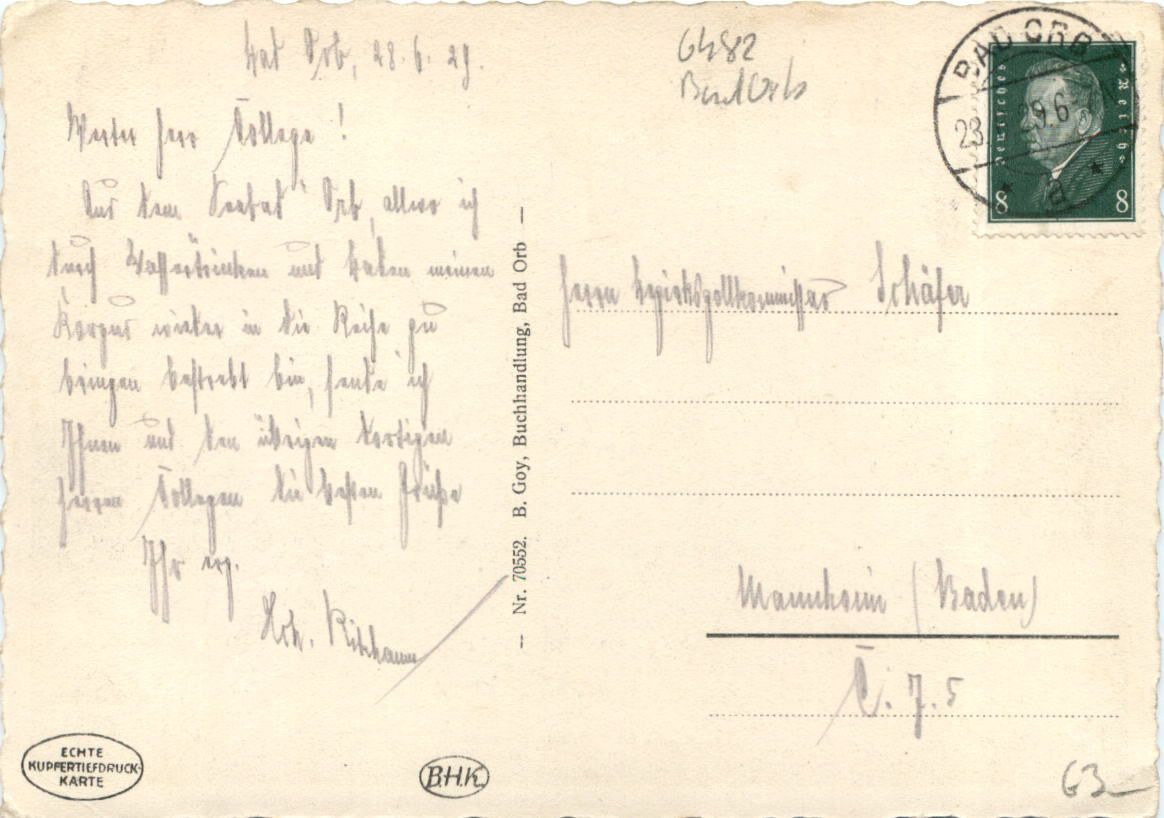 Bad Orb, 28.6.29.
Werter Herr Kollege!
Aus dem Seebad Orb, allwo ich
durch Wassertrinken und Baden meinen
Korpus wieder in die Reihe zu
bringen bestrebt bin, sende ich
Ihnen und den übrigen dortigen
Herren Kollegen die besten Grüße
Ihr erg.
6482
Bad Orb
BAD ORB
29.6
Deutsches Reich
8 8
Herrn Bezirkszollkommissar Schäfer
Mannheim (Baden)
C. 7. 5
— Nr. 70552. B. Goy, Buchhandlung, Bad Orb —
ECHTE
KUPFERTIEFDRUCK-
KARTE
B.H.K.
63